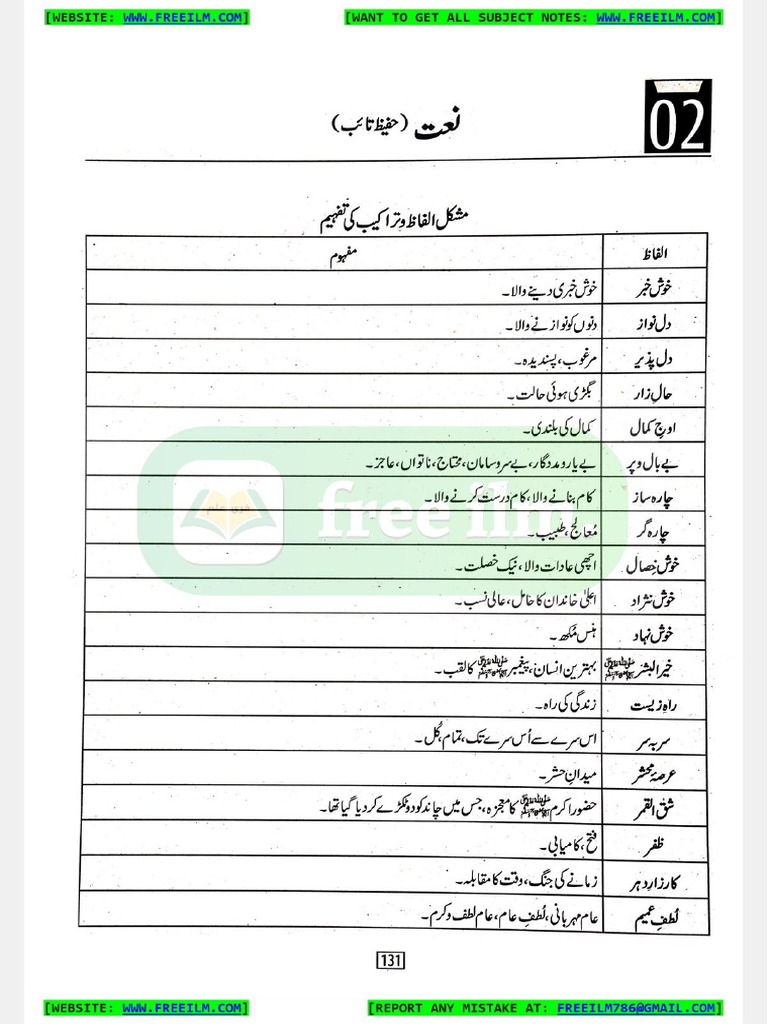 [WEBSITE: WWW.FREEILM.COM] [WANT TO GET ALL SUBJECT NOTES: WWW.FREEILM.COM]
02
نعت (حفیظ تائب)
مشکل الفاظ و تراکیب کی تفہیم
الفاظ مفہوم
خوش خبر خوش خبری دینے والا۔
دل نواز دنوں کو نوازنے والا۔
دل پذیر مرغوب، پسندیدہ۔
حالِ زار بگڑی ہوئی حالت۔
اوجِ کمال کمال کی بلندی۔
بے بال و پر بے یار و مددگار، بے سر و سامان، محتاج، ناتواں، عاجز۔
چارہ ساز کام بنانے والا، کام درست کرنے والا۔
چارہ گر مُعالج، طبیب۔
خوش خِصال اچھی عادات والا، نیک خصلت۔
خوش نژاد اعلیٰ خاندان کا حامل، عالی نسب۔
خوش نہاد ہنس مُکھ۔
خیر البشر ﷺ بہترین انسان، پیغمبر ﷺ کا لقب۔
راہِ زیست زندگی کی راہ۔
سر بہ سر اس سرے سے اُس سرے تک، تمام، کُل۔
عرصۂ محشر میدانِ حشر۔
شق القمر حضور اکرم ﷺ کا معجزہ، جس میں چاند کو دو ٹکڑے کر دیا گیا تھا۔
ظفر فتح، کامیابی۔
کارزارِ دہر زمانے کی جنگ، وقت کا مقابلہ۔
لُطفِ عمیم عام مہربانی، لُطفِ عام، عام لطف و کرم۔
free ilm
131
[WEBSITE: WWW.FREEILM.COM] [REPORT ANY MISTAKE AT: FREEILM786@GMAIL.COM]